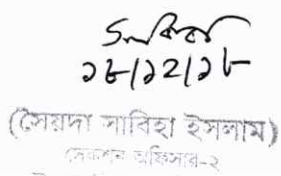 ১৮/১২/১৮
(সৈয়দা সাবিহা ইসলাম)
সেকশন অফিসার-২